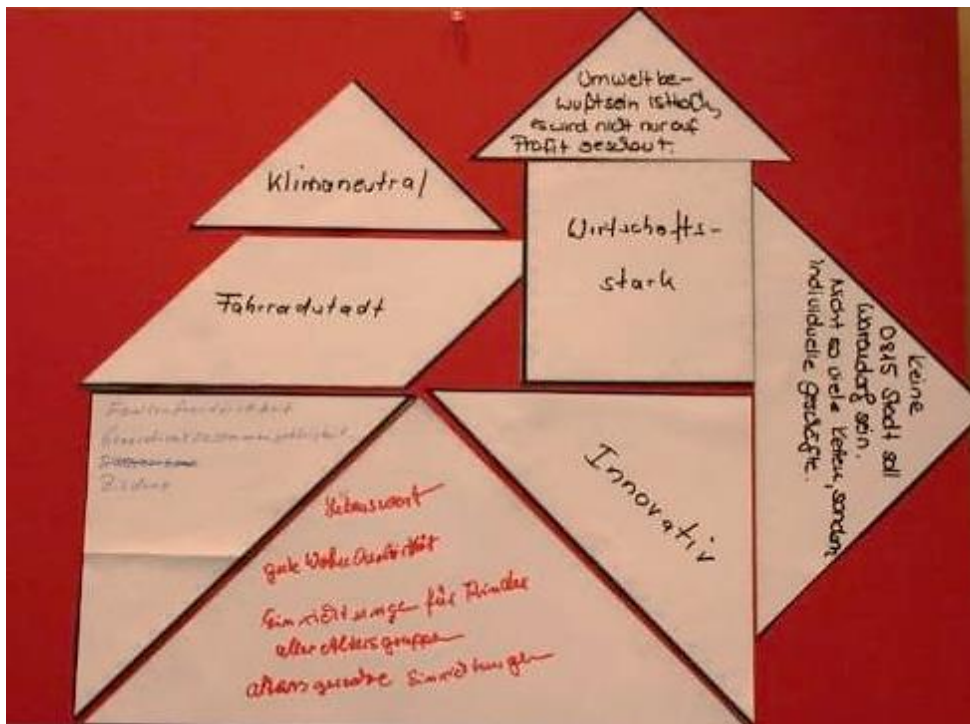 Umweltbe-
wußtsein ist hoch,
es wird nicht nur auf
Profit geschaut.
Klimaneutral
Wirtschafts-
stark
Fahrradstadt
Keine
0815 Stadt soll
Warendorf sein.
Nicht so viele Ketten, sondern
individuelle Geschäfte.
Familienfreundlichkeit
Bildung
Innovativ
Lebenswert
gute Wohnqualität
Einrichtungen für Kinder
aller Altersgruppen
altersgerechte Einrichtungen